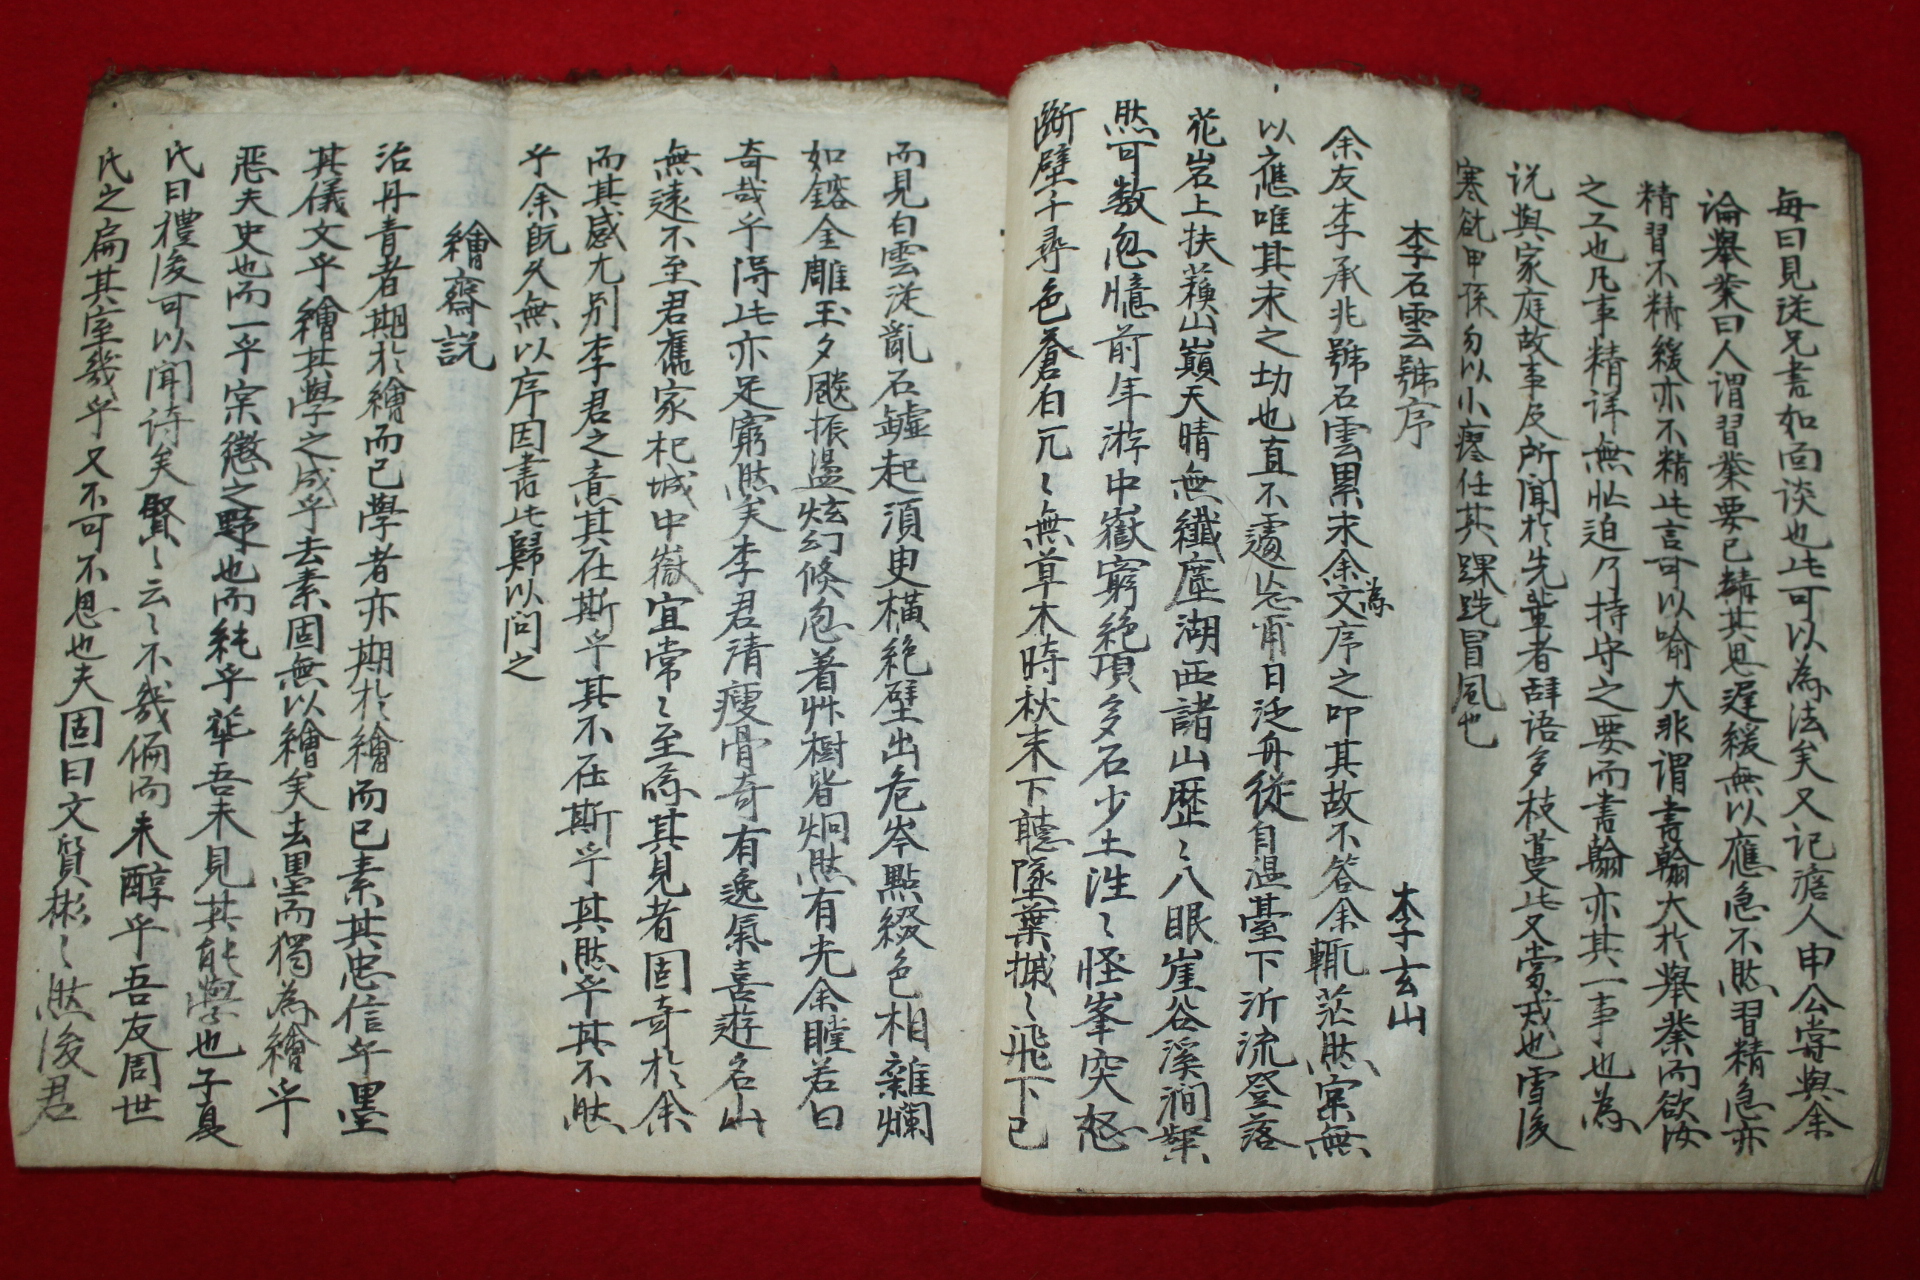 每日見從兄書如面談也此可以為法矣又記澹人申公嘗與余
論舉業曰人謂習業要已精其思遲緩無以應急不然習精急亦
精習不精緩亦不精此言可以喻大非謂書翰大於舉業而欲汝
之工也凡事精詳無忙迫乃持守之要而書翰亦其一事也為
說與家庭故事及所聞於先輩者辭語多枝蔓此又當戒也雪後
寒甲孫勿以小瘳任其踝跣冒風也
李石雲號序
李玄山
余友李承兆號石雲累求余文為序之叩其故不答余輒茫然寀無
以應唯其求之切也直不遽日泛舟從自溫臺下沂流登落
花岩上扶蘓山巔天晴無纖塵湖西諸山歷〻八眼崖谷溪澗
然可數忽憶前年游中嶽窮絶項多石少土泩〻怪峯突怒
斷壁千尋色蒼白兀〻無草木時秋末下聽墜葉摵〻飛下已
而見白雲從亂石罅起湏臾橫絶壁出危岑點綴色相雜爛
如鎔金雕玉夕飈振盪炫幻倐忽着艸樹皆炯然有光余瞠若曰
奇哉乎得此亦足窮然矣李君清瘦骨奇有逸氣喜遊名山
無遠不至君舊家杞城中嶽宜常〻至焉其見者固奇於余
而其感尤别李君之意其在斯乎其不在斯乎其然乎其不然
乎余既久無以序因書此歸以问之
繪齋説
治丹青者期於繪而已學者亦期於繪而已素其忠信乎墨
其儀文乎繪其學之成乎去素固無以繪矣去墨而獨為繪乎
恶夫史也而一乎寀懲之野也而純乎犂吾未見其能學也子夏
氏曰禮後可以聞诗矣賢〻云〻不幾倫而未醇乎吾友周世
氏之扁其室幾乎又不可不思也夫固曰文質彬〻然後君